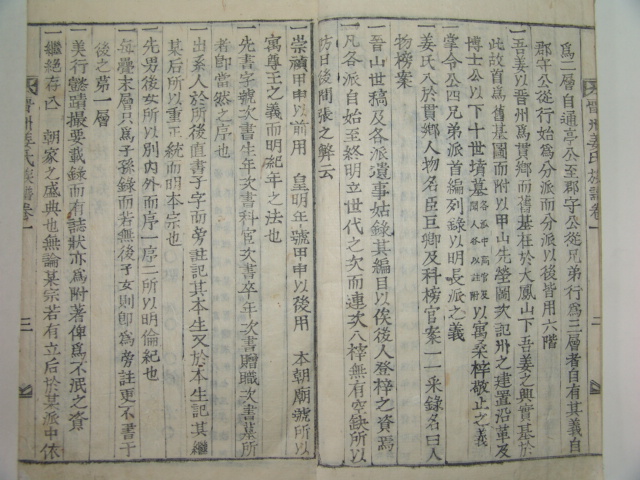 爲二層自通亭公至郡守公從兄弟行爲三層者自有其義自
郡守公從行始爲分派而分派以後皆用六階
一吾姜以晉州爲貫鄉而舊基在於大鳳山下吾姜之興實基於
此故首爲舊基圖而附以甲山先塋圖次記州之建置沿革及
博士公以下十世墳墓各派中高官及聞人各以註附以寓桑梓敬止之義
一掌令公四兄弟派首編列錄以明長派之義
一姜氏入於貫鄉人物名臣巨卿及科榜官案一一采錄名曰人
物榜案
一晉山世稿及各派遺事姑錄其編目以俟後人登梓之資焉
一凡各派自始至終明立世代之次而連次入梓無有空缺所以
防日後間張之弊云
一崇禎甲申以前用 皇明年號甲申以後用 本朝廟號所以
寓尊王之義而明紀年之法也
一先書字號次書生年次書科宦次書卒年次書贈職次書墓所
者卽當然之序也
一出系人於所後直書子字而旁註記其本生又於本生記其繼
某后所以重正統而明本宗也
一先男後女所以別內外而序一序二所以明倫紀也
一每疊末層只爲子孫錄而若無後子女則卽爲旁註更不書于
後之第一層
一美行懿蹟撮要載錄而有誌狀亦爲附著俾爲不泯之資
一繼絶存亡 朝家之盛典也無論某宗若有立后於某派中依
晉州姜氏族譜卷一
二
晉州姜氏族譜卷一
三